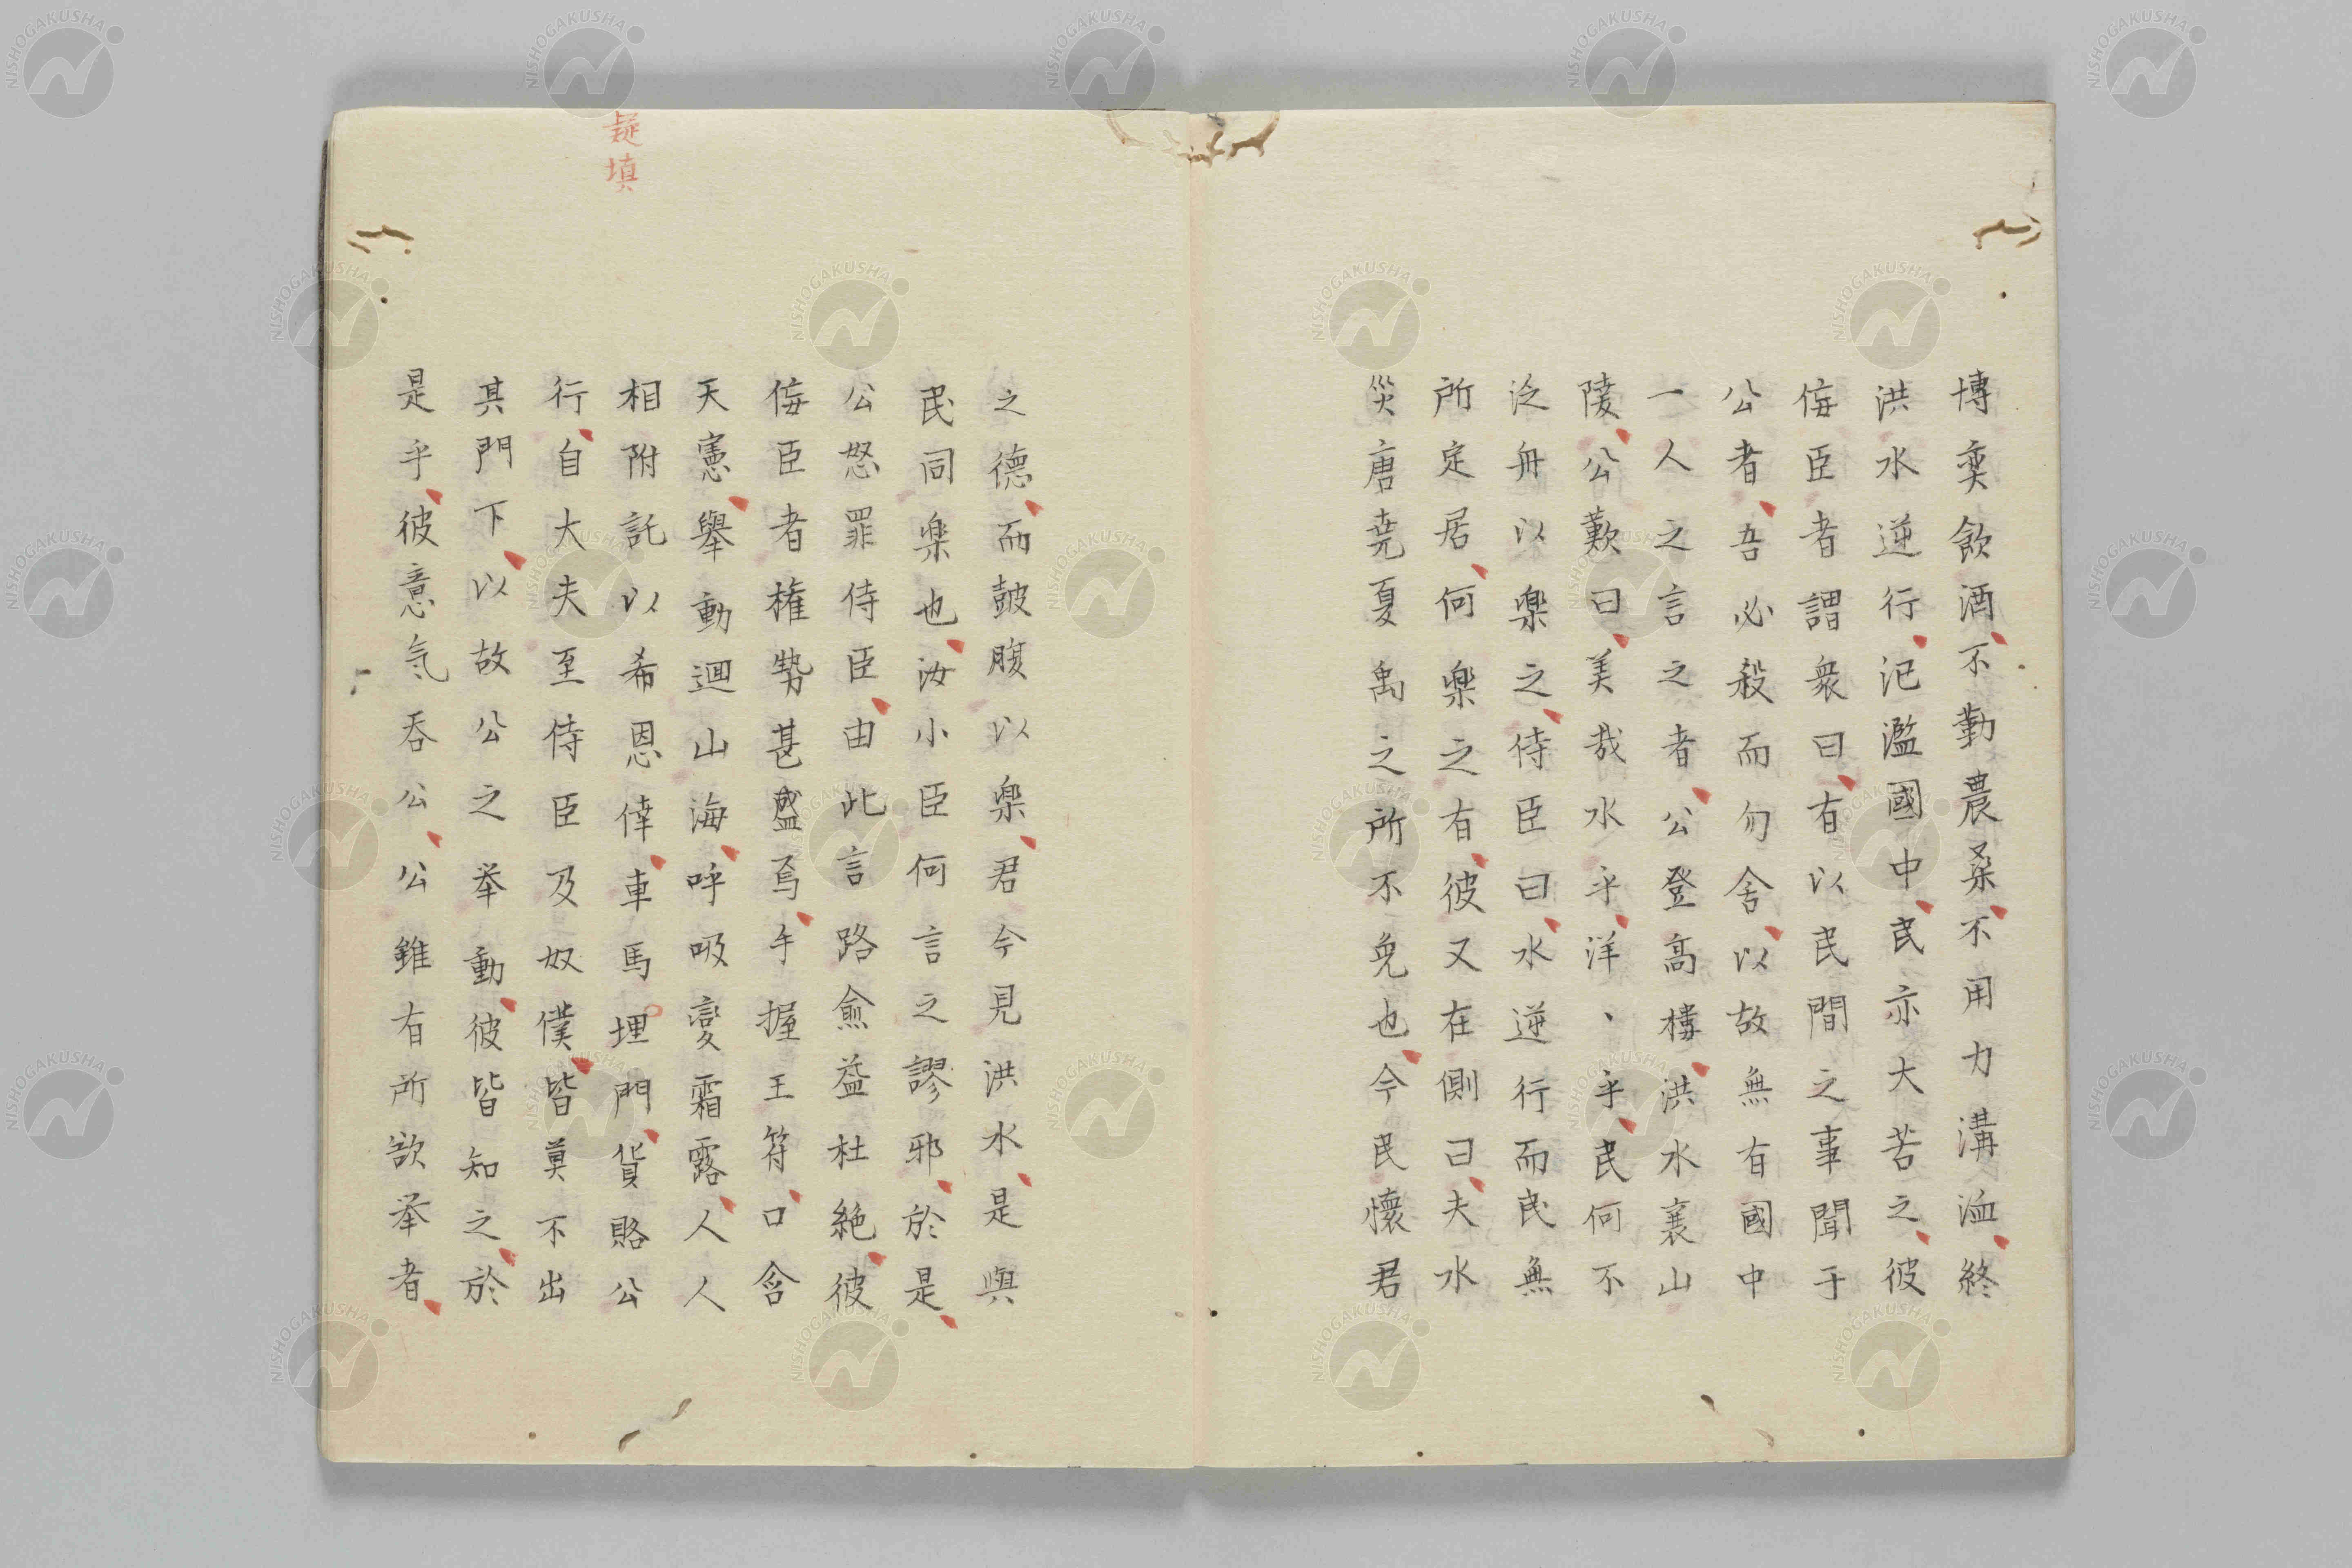 博奕飲酒不勤農桑不用力溝洫終
洪水逆行氾濫國中民亦大苦之彼
侮臣者謂衆曰有以民間之事聞于
公者吾必殺而勿舍以故無有國中
一人之言之者公登高樓洪水襄山
陵公歎曰美哉水乎洋、乎民何不
泛舟以楽之侍臣曰水逆行而民無
所定居何楽之有彼又在側曰夫水
災唐尭夏禹之所不免也今民懷君
之德而鼓腹以楽君今見洪水是與
民同楽也汝小臣何言之謬邪於是
公怒罪侍臣由此言路愈益杜絶彼
侮臣者権勢甚盛焉手握王符口含
天憲舉動迴山海呼吸變霜露人人
疑填
相附託以希恩倖車馬埋門貨賂公
行自大夫至侍臣及奴僕皆莫不出
其門下以故公之挙動彼皆知之於
是乎彼意気呑公公雖有所欲挙者
NISHOGAKUSHA